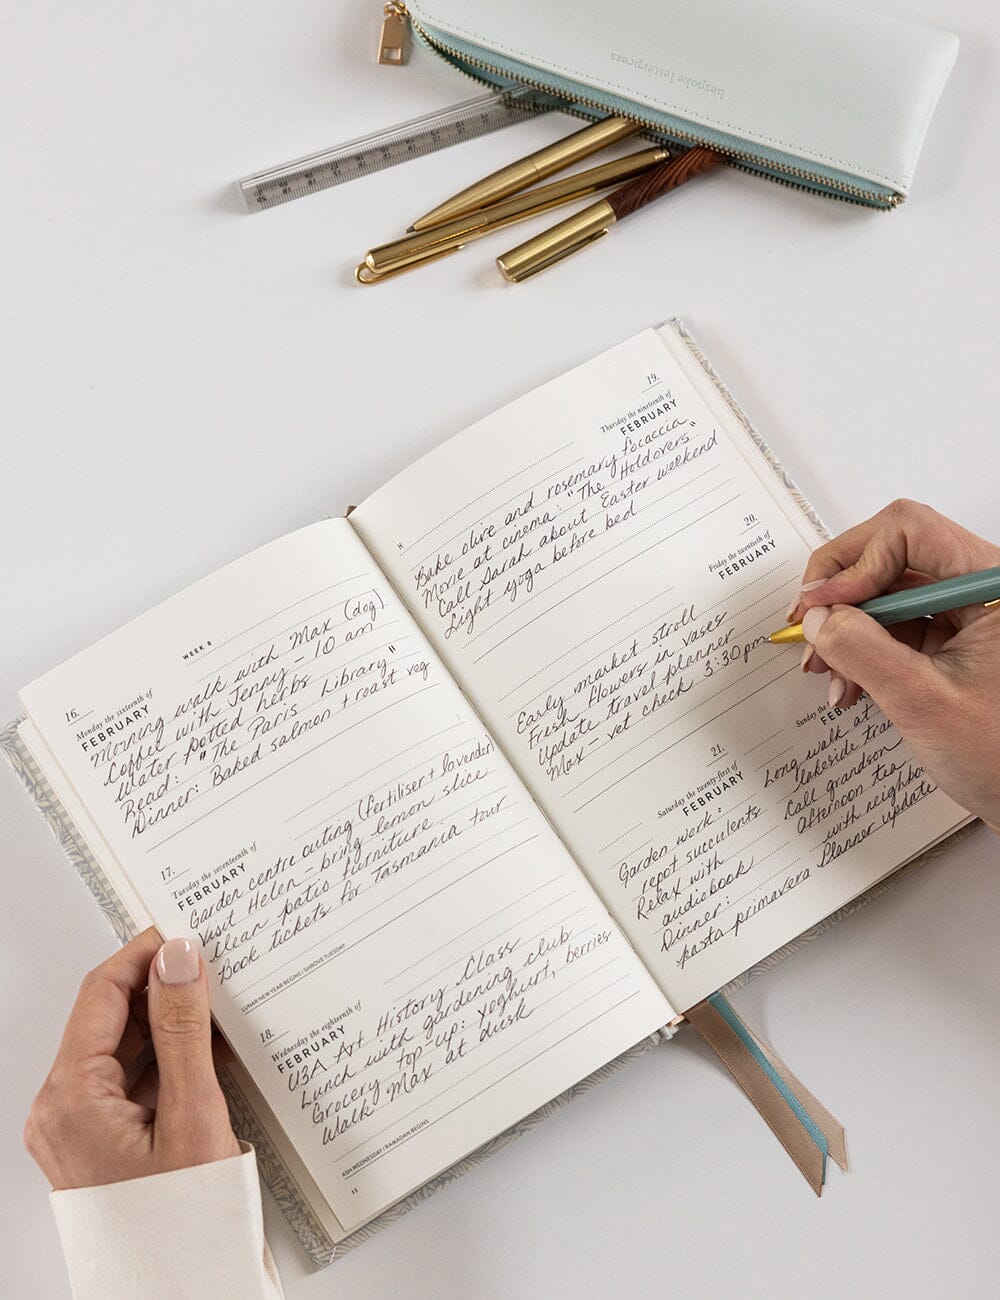 bespoke letterpress
WEEK 8
16.
Monday the sixteenth of
FEBRUARY
Morning walk with Max (dog)
Coffee with Jenny - 10 am
Water potted herbs
Read: "The Paris Library"
Dinner: Baked salmon + roast veg
17.
Tuesday the seventeenth of
FEBRUARY
Garden centre outing (fertiliser + lavender)
Visit Helen - bring lemon slice
Clean patio furniture.
Book tickets for Tasmania tour
LUNAR NEW YEAR BEGINS / SHROVE TUESDAY
18.
Wednesday the eighteenth of
FEBRUARY
U3A Art History Class
Lunch with gardening club
Grocery top-up: yoghurt, berries
Walk Max at dusk
ASH WEDNESDAY / RAMADAN BEGINS
19.
Thursday the nineteenth of
FEBRUARY
Bake olive and rosemary focaccia
Movie at cinema: "The Holdovers"
Call Sarah about Easter weekend
Light yoga before bed
20.
Friday the twentieth of
FEBRUARY
Early market stroll
Fresh flowers in vases
Update travel planner
Max - vet check 3:30pm
21.
Saturday the twenty-first of
FEBRUARY
Garden work:
repot succulents
Relax with
audiobook
Dinner:
pasta primavera
Sunday the
Long walk at
lakeside
Call grandson
Afternoon tea
with
Planner update